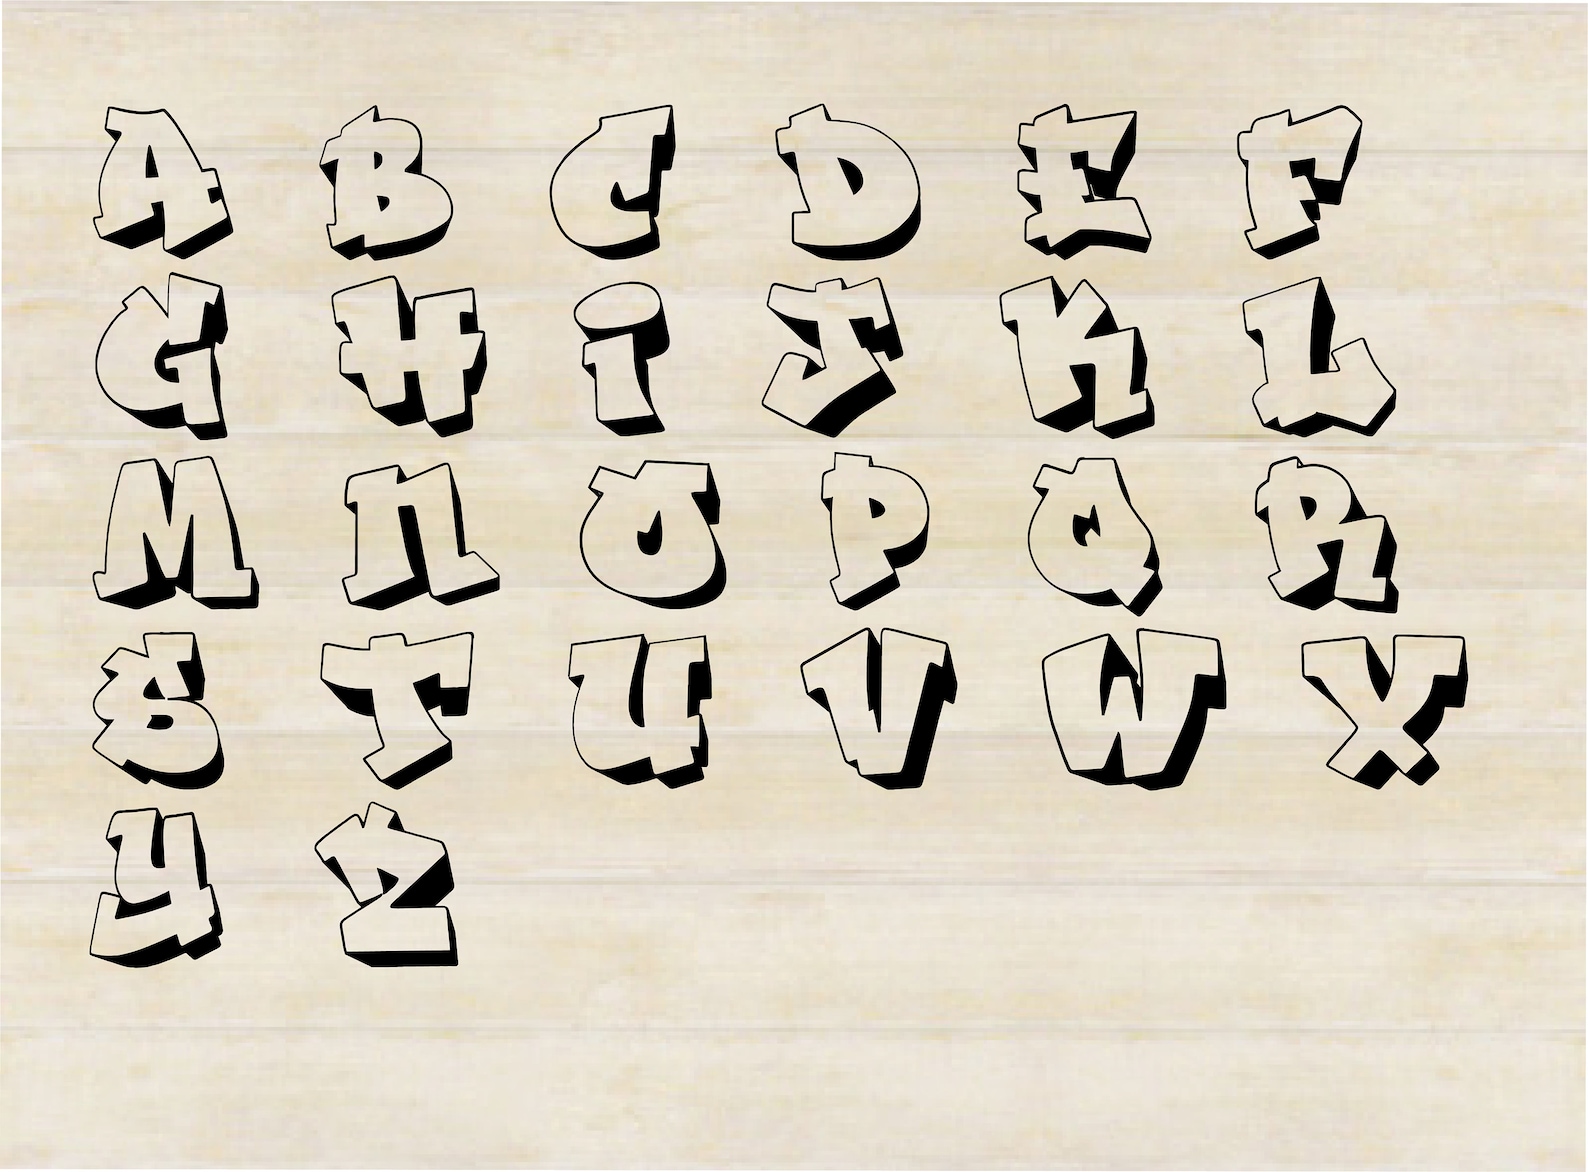 A B C D E F
G H i J K L
M N O P Q R
S T U V W X
Y Z